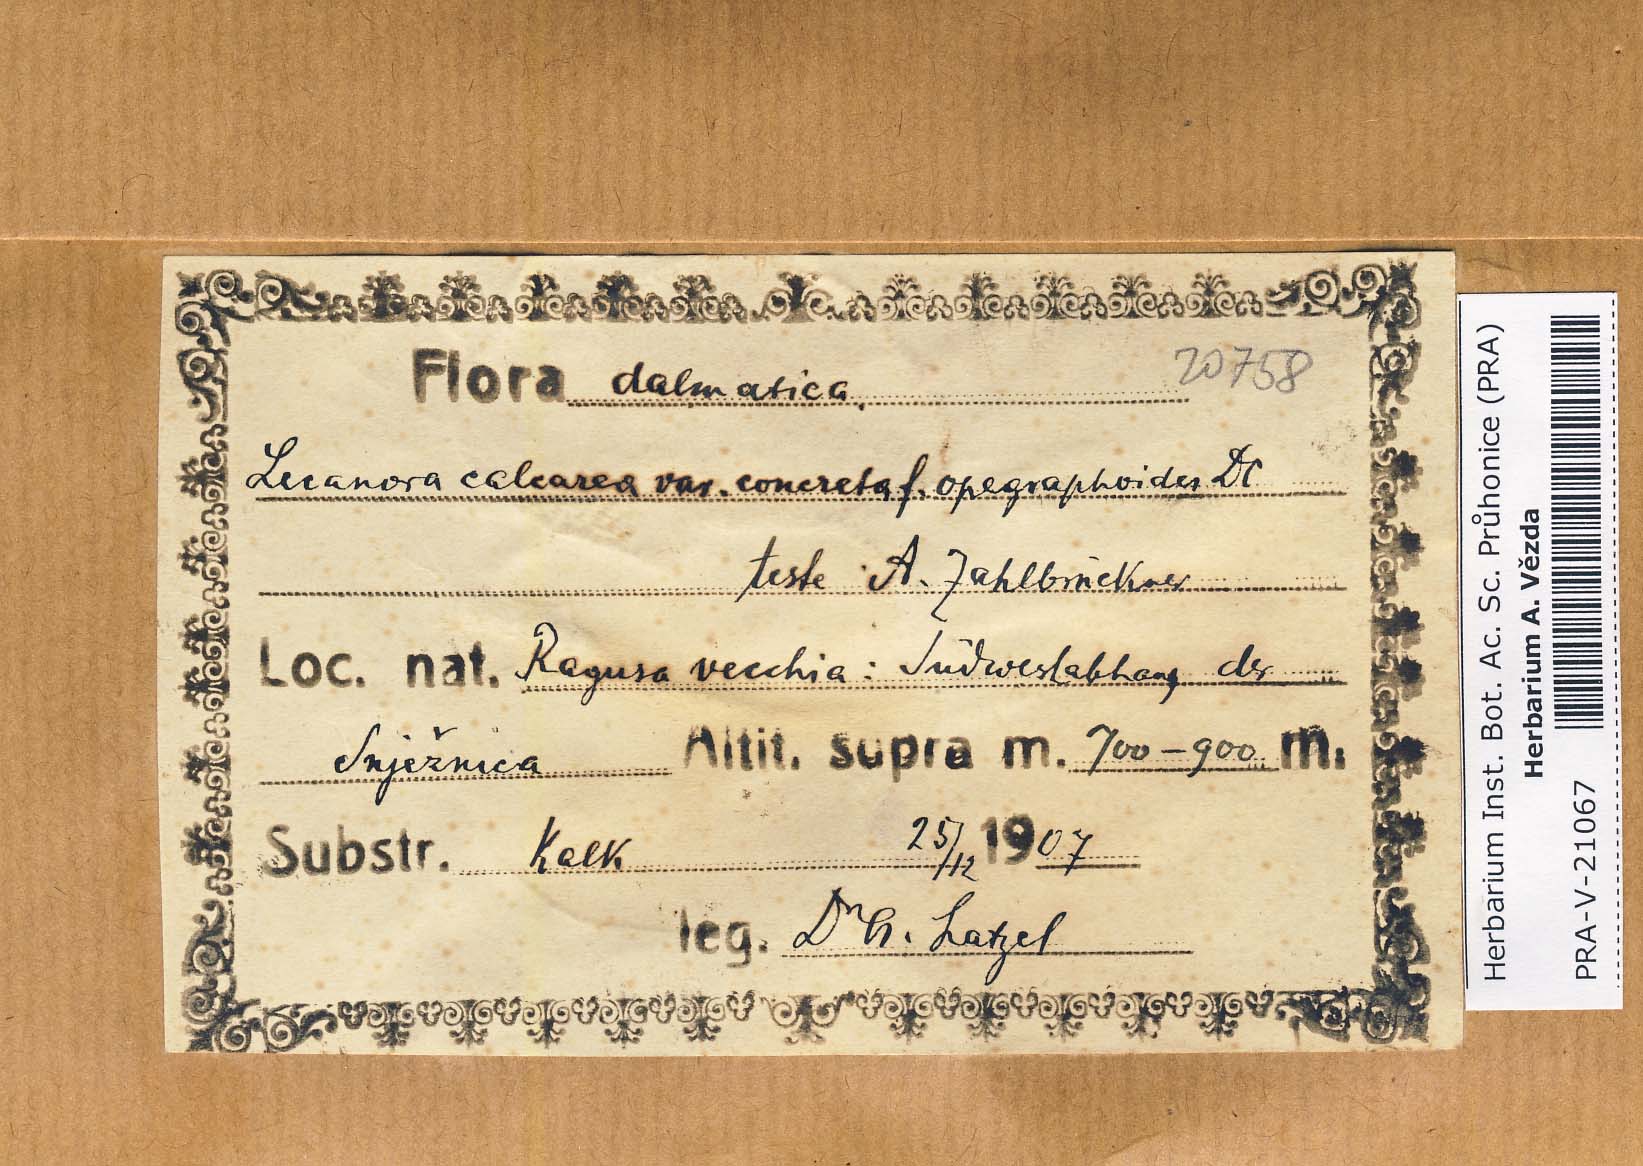 Flora dalmatica.
20758
Lecanora calcarea var. concreta f. opegraphoides DC
teste A. Zahlbruckner
Loc. nat. Ragusa vecchia: Südwestabhang der
Snježnica Altit. supra m. 700-900 m.
Substr. Kalk 25/12 1907
leg. Dr. A. Latzel
Herbarium Inst. Bot. Ac. Sc. Průhonice (PRA)
Herbarium A. Vězda
PRA-V-21067